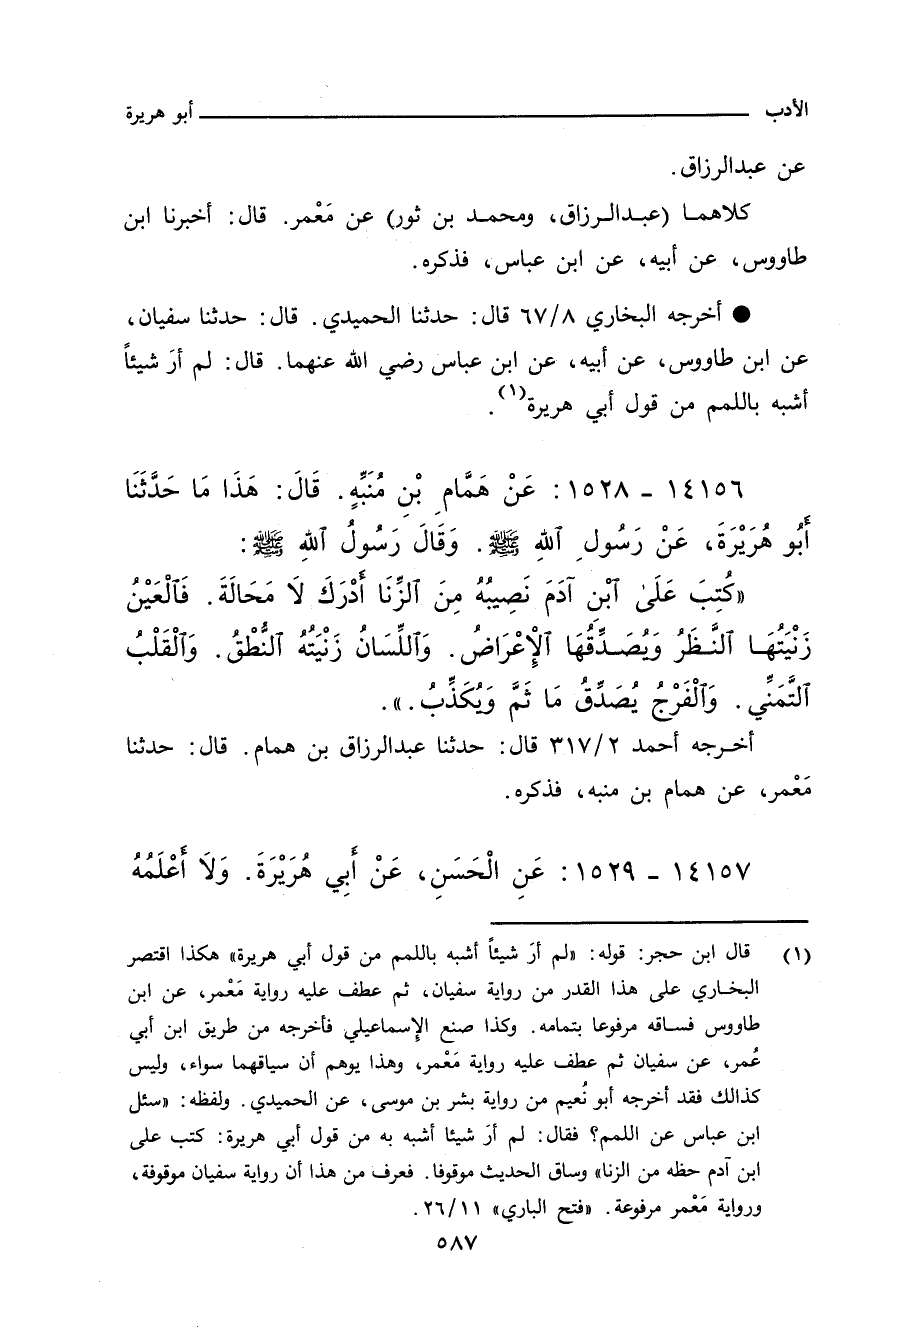 الأدب ــــــــــــــــــــــــــــــــــــ أبو هريرة
عن عبدالرزاق.
كلاهما (عبدالرزاق، ومحمد بن ثور) عن مَعْمر. قال: أخبرنا ابن
طاووس، عن أبيه، عن ابن عباس، فذكره.
● أخرجه البخاري ٦٧/٨ قال: حدثنا الحميدي. قال: حدثنا سفيان،
عن ابن طاووس، عن أبيه، عن ابن عباس رضي الله عنهما. قال: لم أرَ شيئاً
أشبه باللمم من قول أبي هريرة(١).
١٤١٥٦ - ١٥٢٨: عَنْ هَمَّامِ بْنِ مُنَبِّهٍ. قَالَ: هَذَا مَا حَدَّثَنَا
أَبُو هُرَيْرَةَ، عَنْ رَسُولِ ٱللهِ ﷺ. وَقَالَ رَسُولُ ٱللهِ ﷺ:
«كُتِبَ عَلَىٰ ٱبْنِ آدَمَ نَصِيبُهُ مِنَ ٱلزِّنَا أَدْرَكَ لَا مَحَالَةَ. فَٱلْعَيْنُ
زِنْيَتُهَا ٱلنَّظَرُ وَيُصَدِّقُهَا ٱلْإِعْرَاضُ. وَٱللِّسَانُ زِنْيَتُهُ ٱلنُّطْقُ. وَٱلْقَلْبُ
ٱلتَّمَنِّي. وَٱلْفَرْجُ يُصَدِّقُ مَا ثَمَّ وَيُكَذِّبُ.».
أخرجه أحمد ٣١٧/٢ قال: حدثنا عبدالرزاق بن همام. قال: حدثنا
مَعْمر، عن همام بن منبه، فذكره.
١٤١٥٧ - ١٥٢٩: عَنِ الْحَسَنِ، عَنْ أَبِي هُرَيْرَةَ. وَلَا أَعْلَمُهُ
(١) قال ابن حجر: قوله: «لم أرَ شيئاً أشبه باللمم من قول أبي هريرة» هكذا اقتصر
البخاري على هذا القدر من رواية سفيان، ثم عطف عليه رواية مَعْمر، عن ابن
طاووس فساقه مرفوعا بتمامه. وكذا صنع الإسماعيلي فأخرجه من طريق ابن أبي
عُمر، عن سفيان ثم عطف عليه رواية مَعْمر، وهذا يوهم أن سياقهما سواء، وليس
كذالك فقد أخرجه أبو نُعيم من رواية بشر بن موسى، عن الحميدي. ولفظه: «سئل
ابن عباس عن اللمم؟ فقال: لم أرَ شيئا أشبه به من قول أبي هريرة: كتب على
ابن آدم حظه من الزنا» وساق الحديث موقوفا. فعرف من هذا أن رواية سفيان موقوفة،
ورواية مَعْمر مرفوعة. «فتح الباري» ٢٦/١١.
٥٨٧